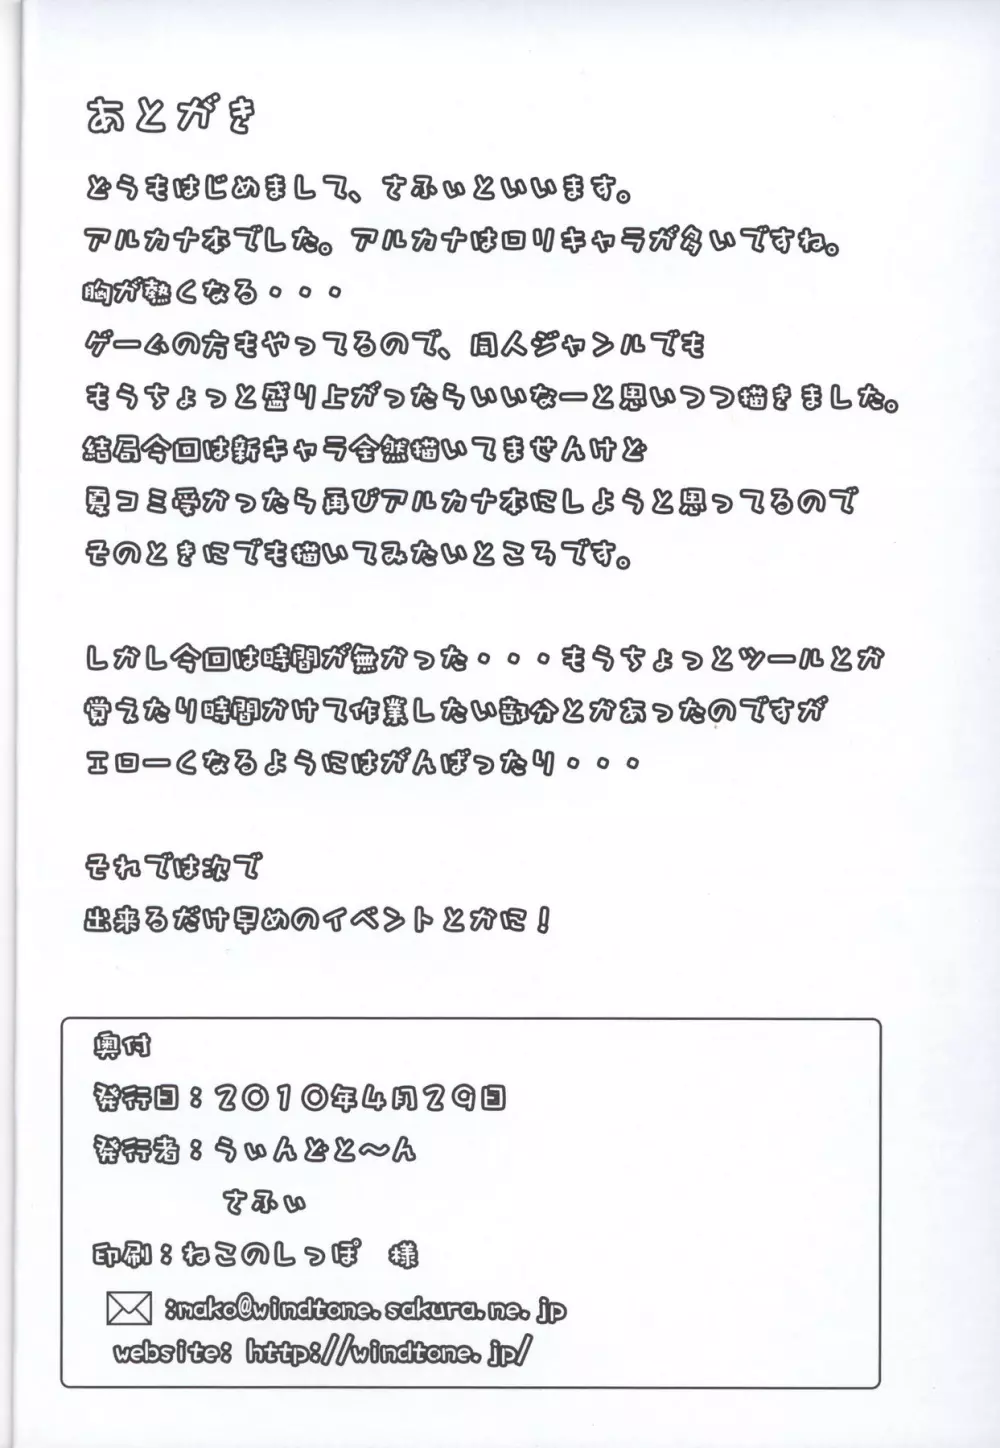 あとがき
どうもはじめまして、さふぃといいます。
アルカナ本でした。アルカナはロリキャラが多いですね。
胸が熱くなる・・・
ゲームの方もやってるので、同人ジャンルでも
もうちょっと盛り上がったらいいなーと思いつつ描きました。
結局今回は新キャラ全然描いてませんけど
夏コミ受かったら再びアルカナ本にしようと思ってるので
そのときにでも描いてみたいところです。
しかし今回は時間が無かった・・・もうちょっとツールとか
覚えたり時間かけて作業したい部分とかあったのですが
エローくなるようにはがんばったり・・・
それでは次で
出来るだけ早めのイベントとかに！
奥付
発行日：２０１０年４月２９日
発行者：うぃんどと～ん
さふぃ
印刷：ねこのしっぽ　様
:mako@windtone.sakura.ne.jp
website: http://windtone.jp/